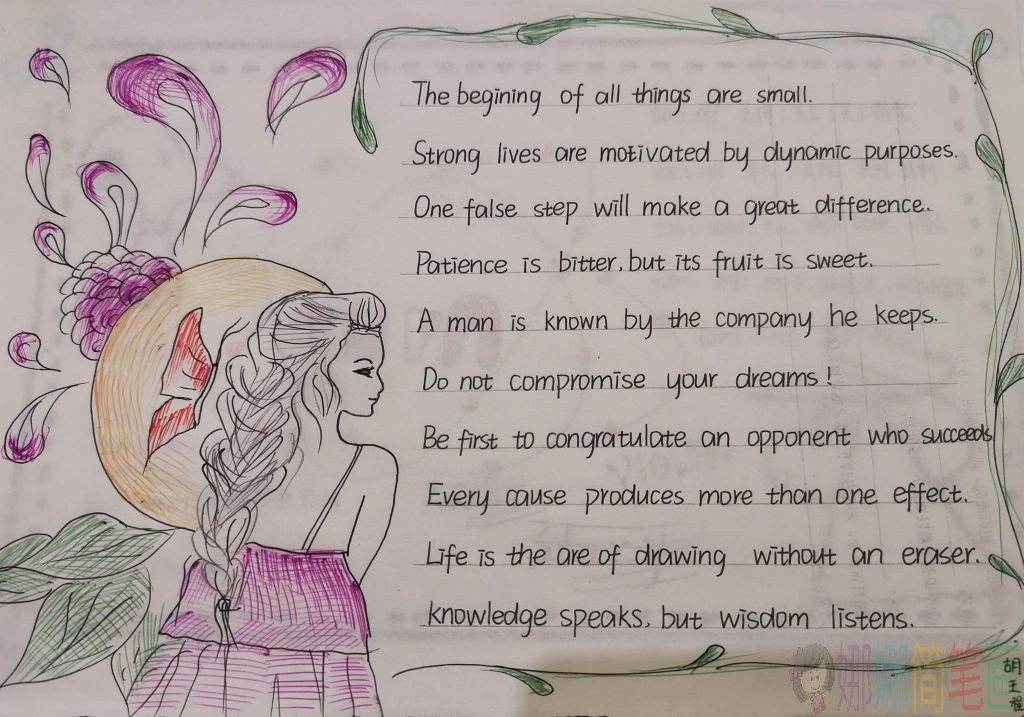 The begining of all things are small.
Strong lives are motivated by dynamic purposes.
One false step will make a great difference.
Patience is bitter, but its fruit is sweet.
A man is known by the company he keeps.
Do not compromise your dreams!
Be first to congratulate an opponent who succeeds
Every cause produces more than one effect.
Life is the are of drawing without an eraser.
knowledge speaks, but wisdom listens.
娜娜简笔画
胡王程